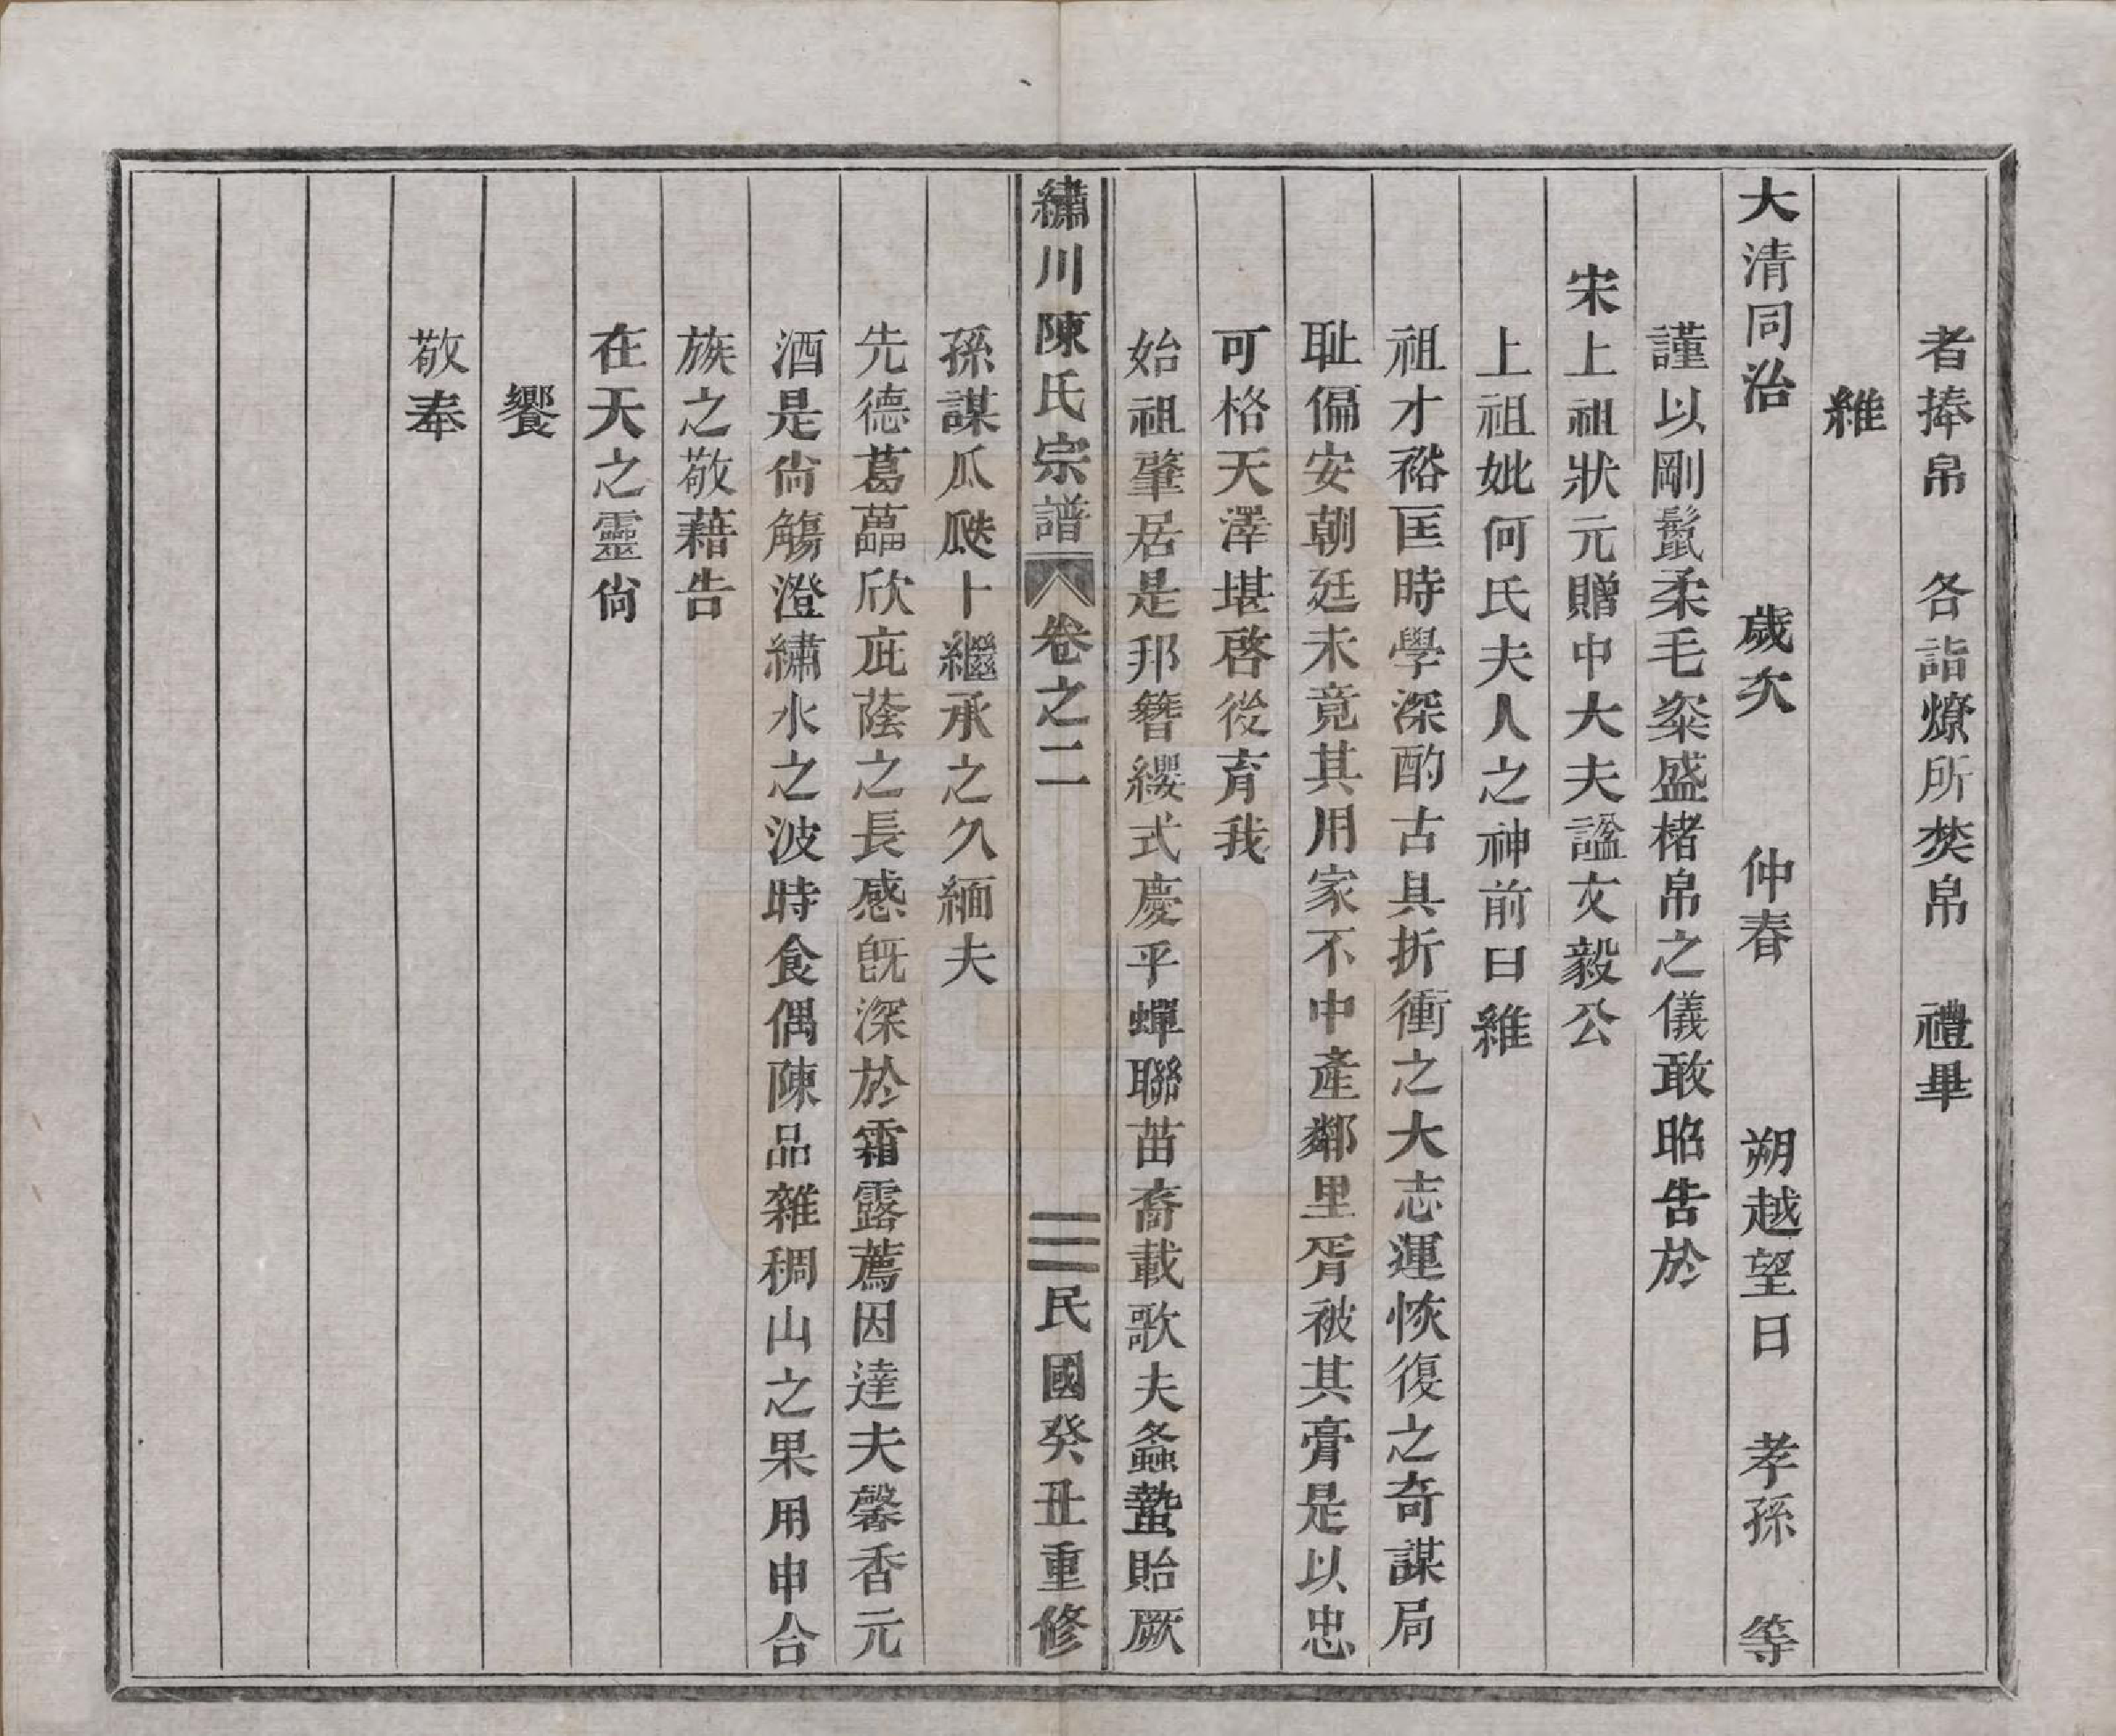 者捧帛　各詣燎所焚帛　禮畢
維
大清同治　歲次　仲春　朔越望日　孝孫　等
謹以剛鬣柔毛粢盛楮帛之儀敢昭告於
宋上祖狀元贈中大夫諡文毅公
上祖妣何氏夫人之神前曰維
祖才裕匡時學深酌古具折衝之大志運恢復之奇謀局
耻偏安朝廷未竟其用家不中產鄰里胥被其膏是以忠
可格天澤堪啓後育我
始祖肇居是邦簪纓式慶乎蟬聯苗裔載歌夫螽蟄貽厥
繡川陳氏宗譜　卷之二　三　民國癸丑重修
孫謀瓜瓞卜繼承之久緬夫
先德葛藟欣庇蔭之長感旣深於霜露薦因達夫馨香元
酒是尙觴澄繡水之波時食偶陳品雜稠山之果用申合
族之敬藉告
在天之靈尙
饗
敬奉